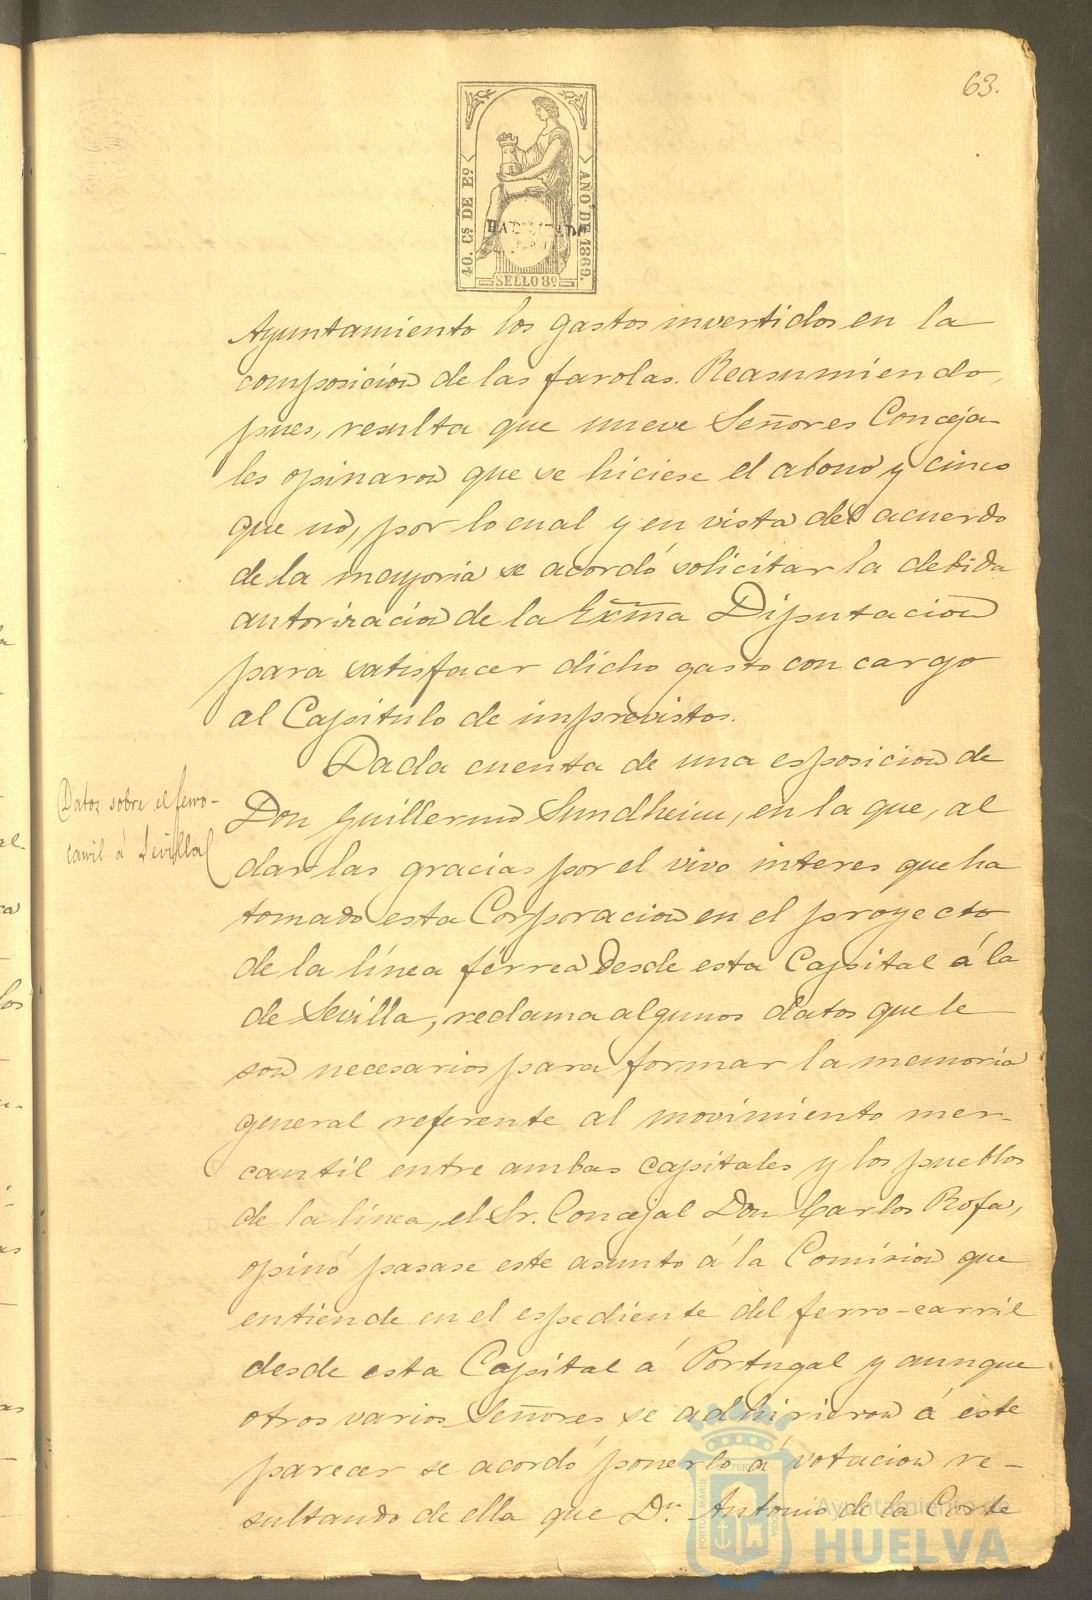 63.
40. Cs. DE Eo.
AÑO DE 1869.
SELLO 8º
Ayuntamiento los gastos invertidos en la
composicion de las farolas. Reasumiendo,
pues, resulta que nueve Señores Conceja-
les opinaron que se hiciese el abono y cinco
que no, por lo cual y en vista del acuerdo
de la mayoria se acordó solicitar la debida
autorizacion de la Exma Diputacion
para satisfacer dicho gasto con cargo
al Capitulo de imprevistos.
Datos sobre el ferro-
carril á Sevilla
Dada cuenta de una esposicion de
Don Guillermo Sundheim, en la que, al
dar las gracias por el vivo interes que ha
tomado esta Corporacion en el proyecto
de la línea férrea desde esta Capital á la
de Sevilla, reclama algunos datos que le
son necesarios para formar la memoria
general referente al movimiento mer-
cantil entre ambas capitales y los pueblos
de la línea, el Sr. Concejal Don Carlos Rofa,
opinó pasase este asunto á la Comision que
entiende en el espediente del ferro-carril
desde esta Capital á Portugal y aunque
otros varios Señores se adhirieron á este
parecer se acordó ponerlo á votacion re-
sultando de ella que Dn. Antonio de la Corte
Ayuntamiento de
HUELVA